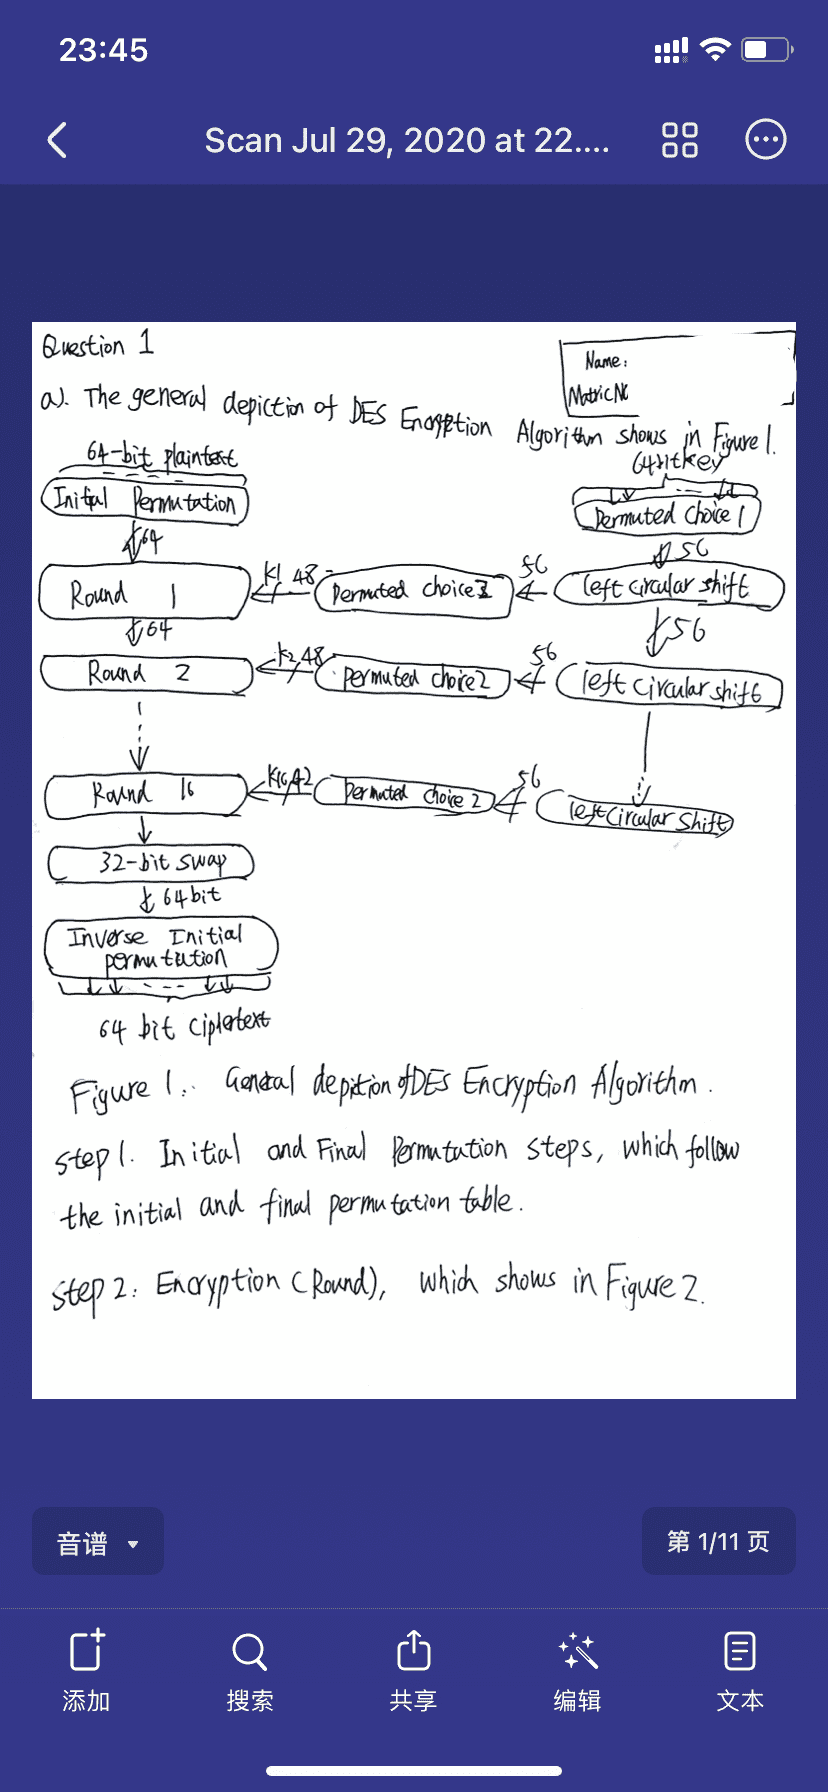 23:45
Scan Jul 29, 2020 at 22....
Question 1
Name:
Matric No
a). The general depiction of DES Encryption Algorithm shows in Figure 1.
64-bit plaintext
64 bit key
Initial Permutation
Permuted Choice 1
64
56
Round 1
K1 48
Permuted choice 2
56
left circular shift
64
56
Round 2
K2 48
permuted choice 2
56
left circular shift
Round 16
K16 42
Permuted choice 2
56
left Circular Shift
32-bit swap
64 bit
Inverse Initial
permutation
64 bit ciphertext
Figure 1. General depiction of DES Encryption Algorithm.
step 1. Initial and Final Permutation steps, which follow
the initial and final permutation table.
step 2: Encryption (Round), which shows in Figure 2.
音谱
第 1/11 页
添加
搜索
共享
编辑
文本